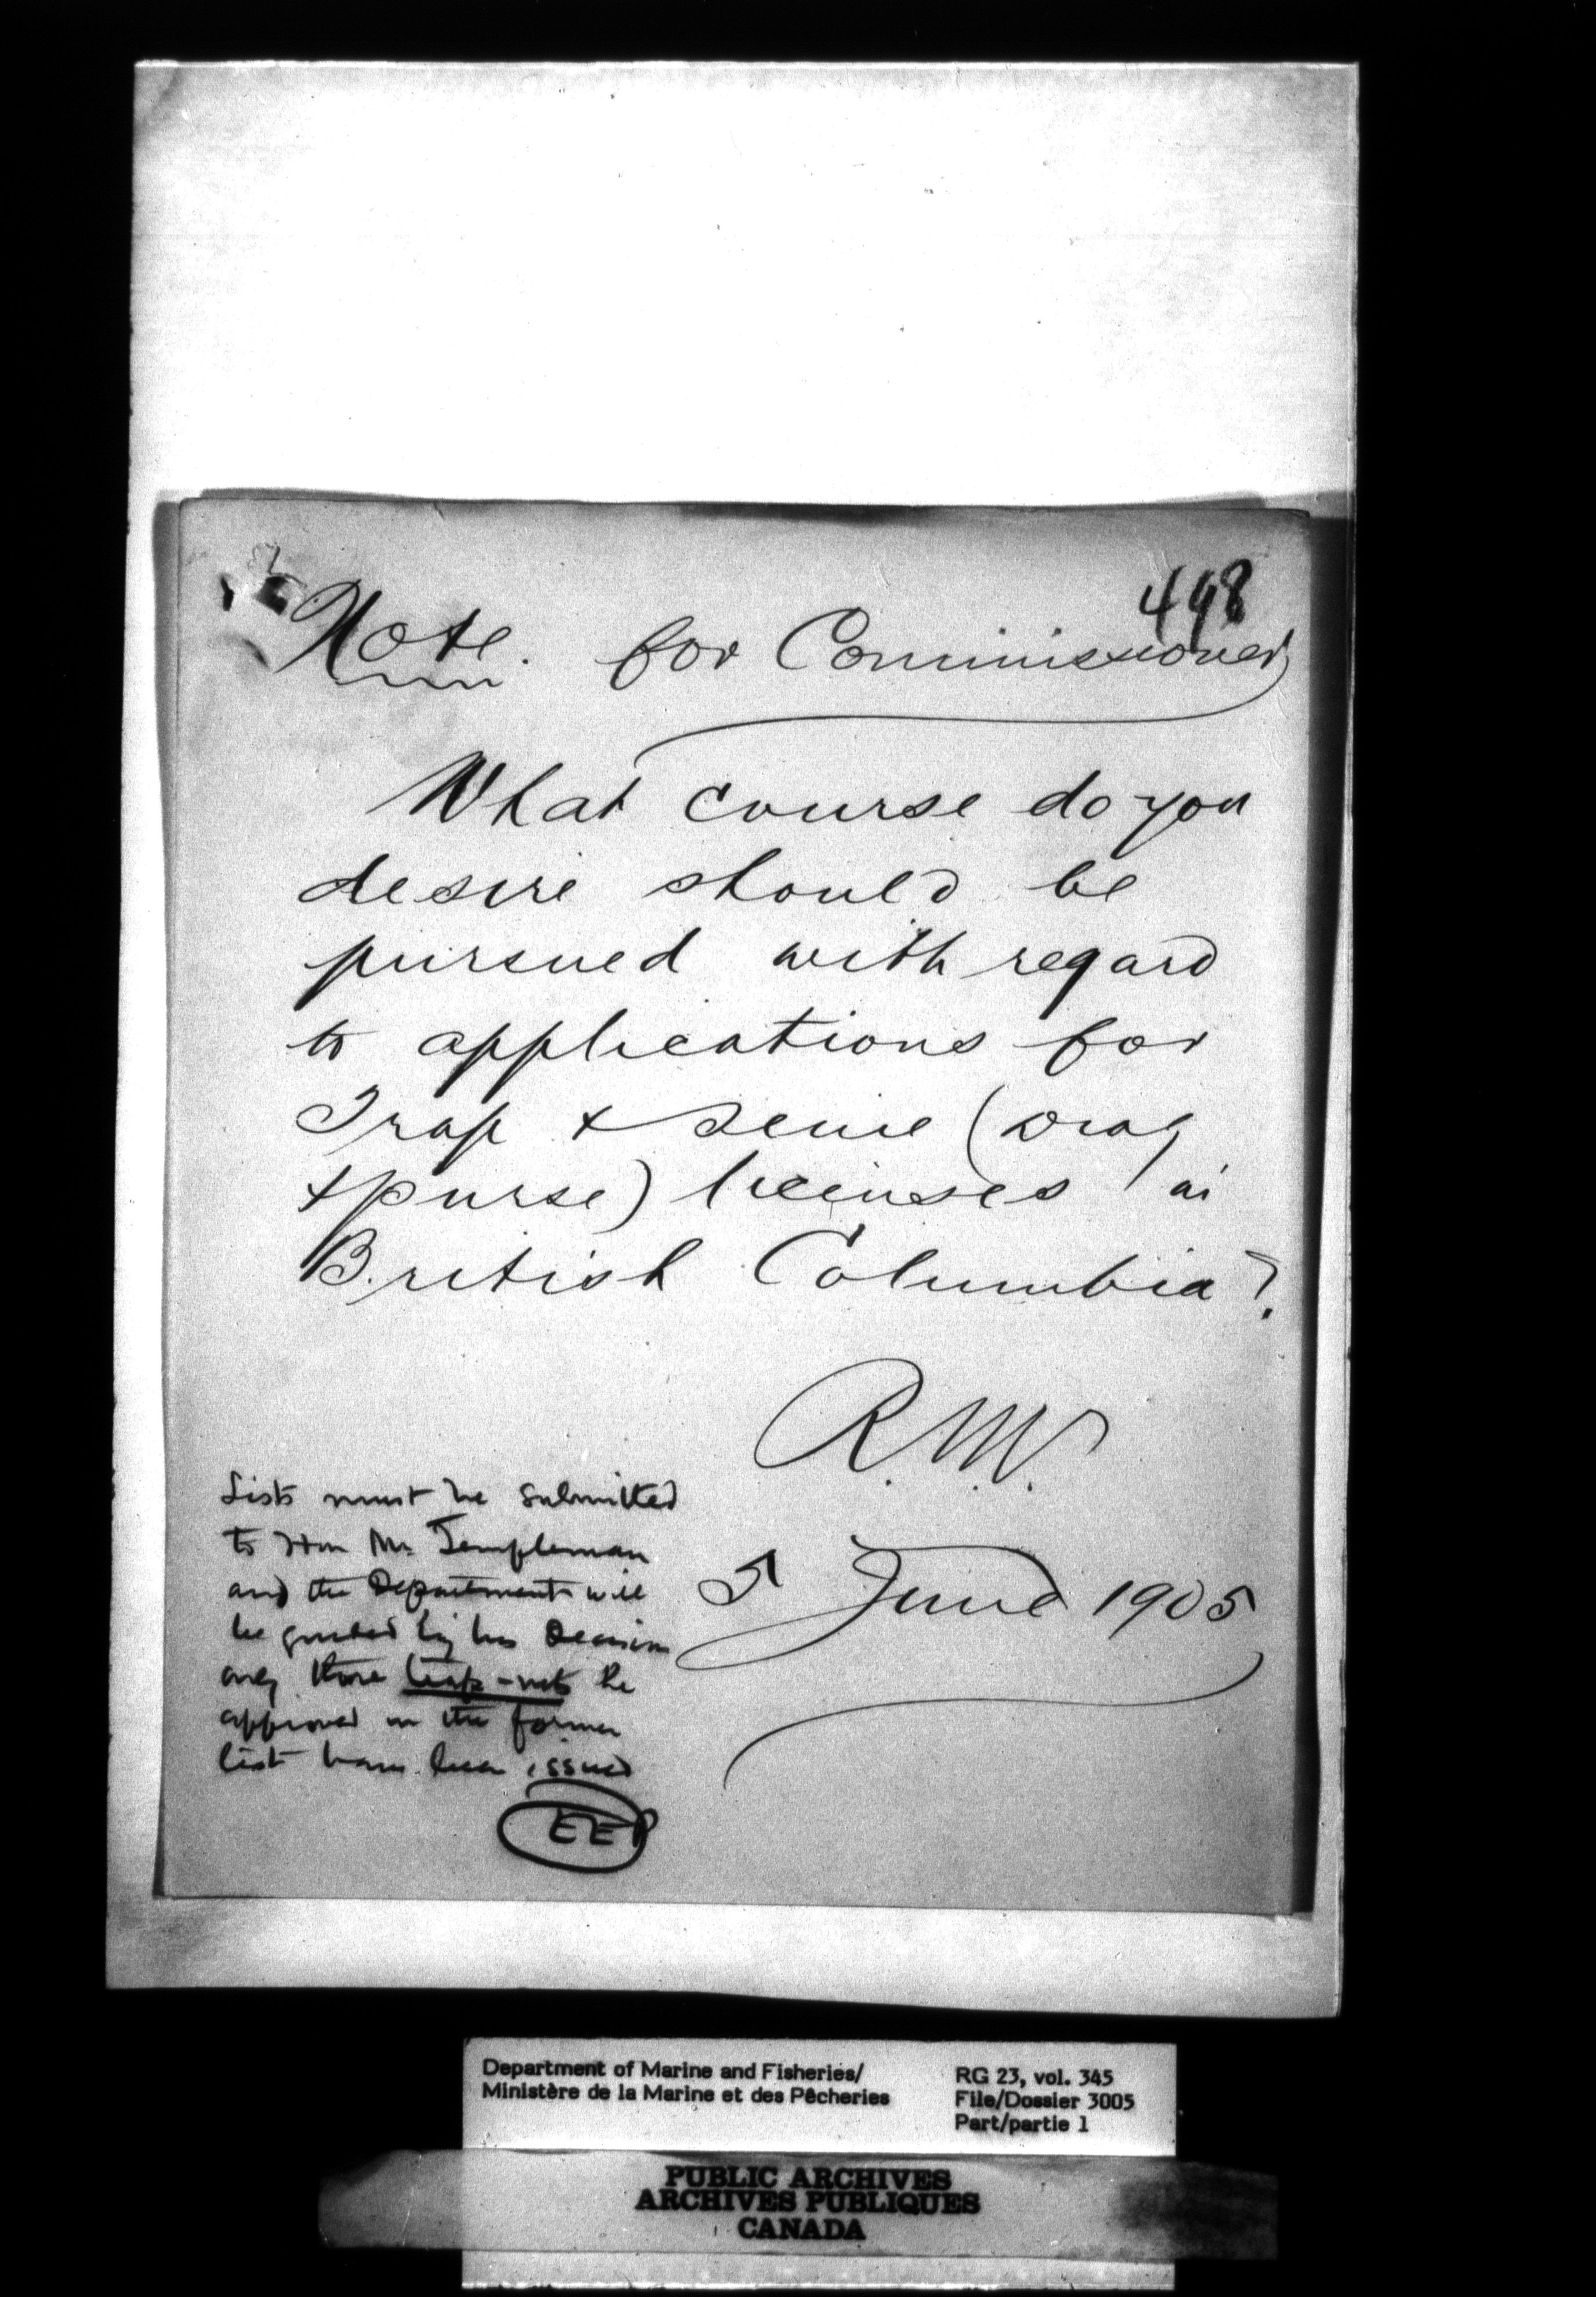 498
Note. for Commissioner
What course do you
desire should be
pursued with regard
to applications for
Trap & Seine (Drag
& purse) licenses in
British Columbia?
R.N.V.
5 June 1905
Lists must be submitted
to Hon Mr. Templeman
and the Department will
be guided by his decision
only those trap-nets he
approved in the former
list have been issued
EEP
Department of Marine and Fisheries/
Ministère de la Marine et des Pêcheries
RG 23, vol. 345
File/Dossier 3005
Part/partie 1
PUBLIC ARCHIVES
ARCHIVES PUBLIQUES
CANADA